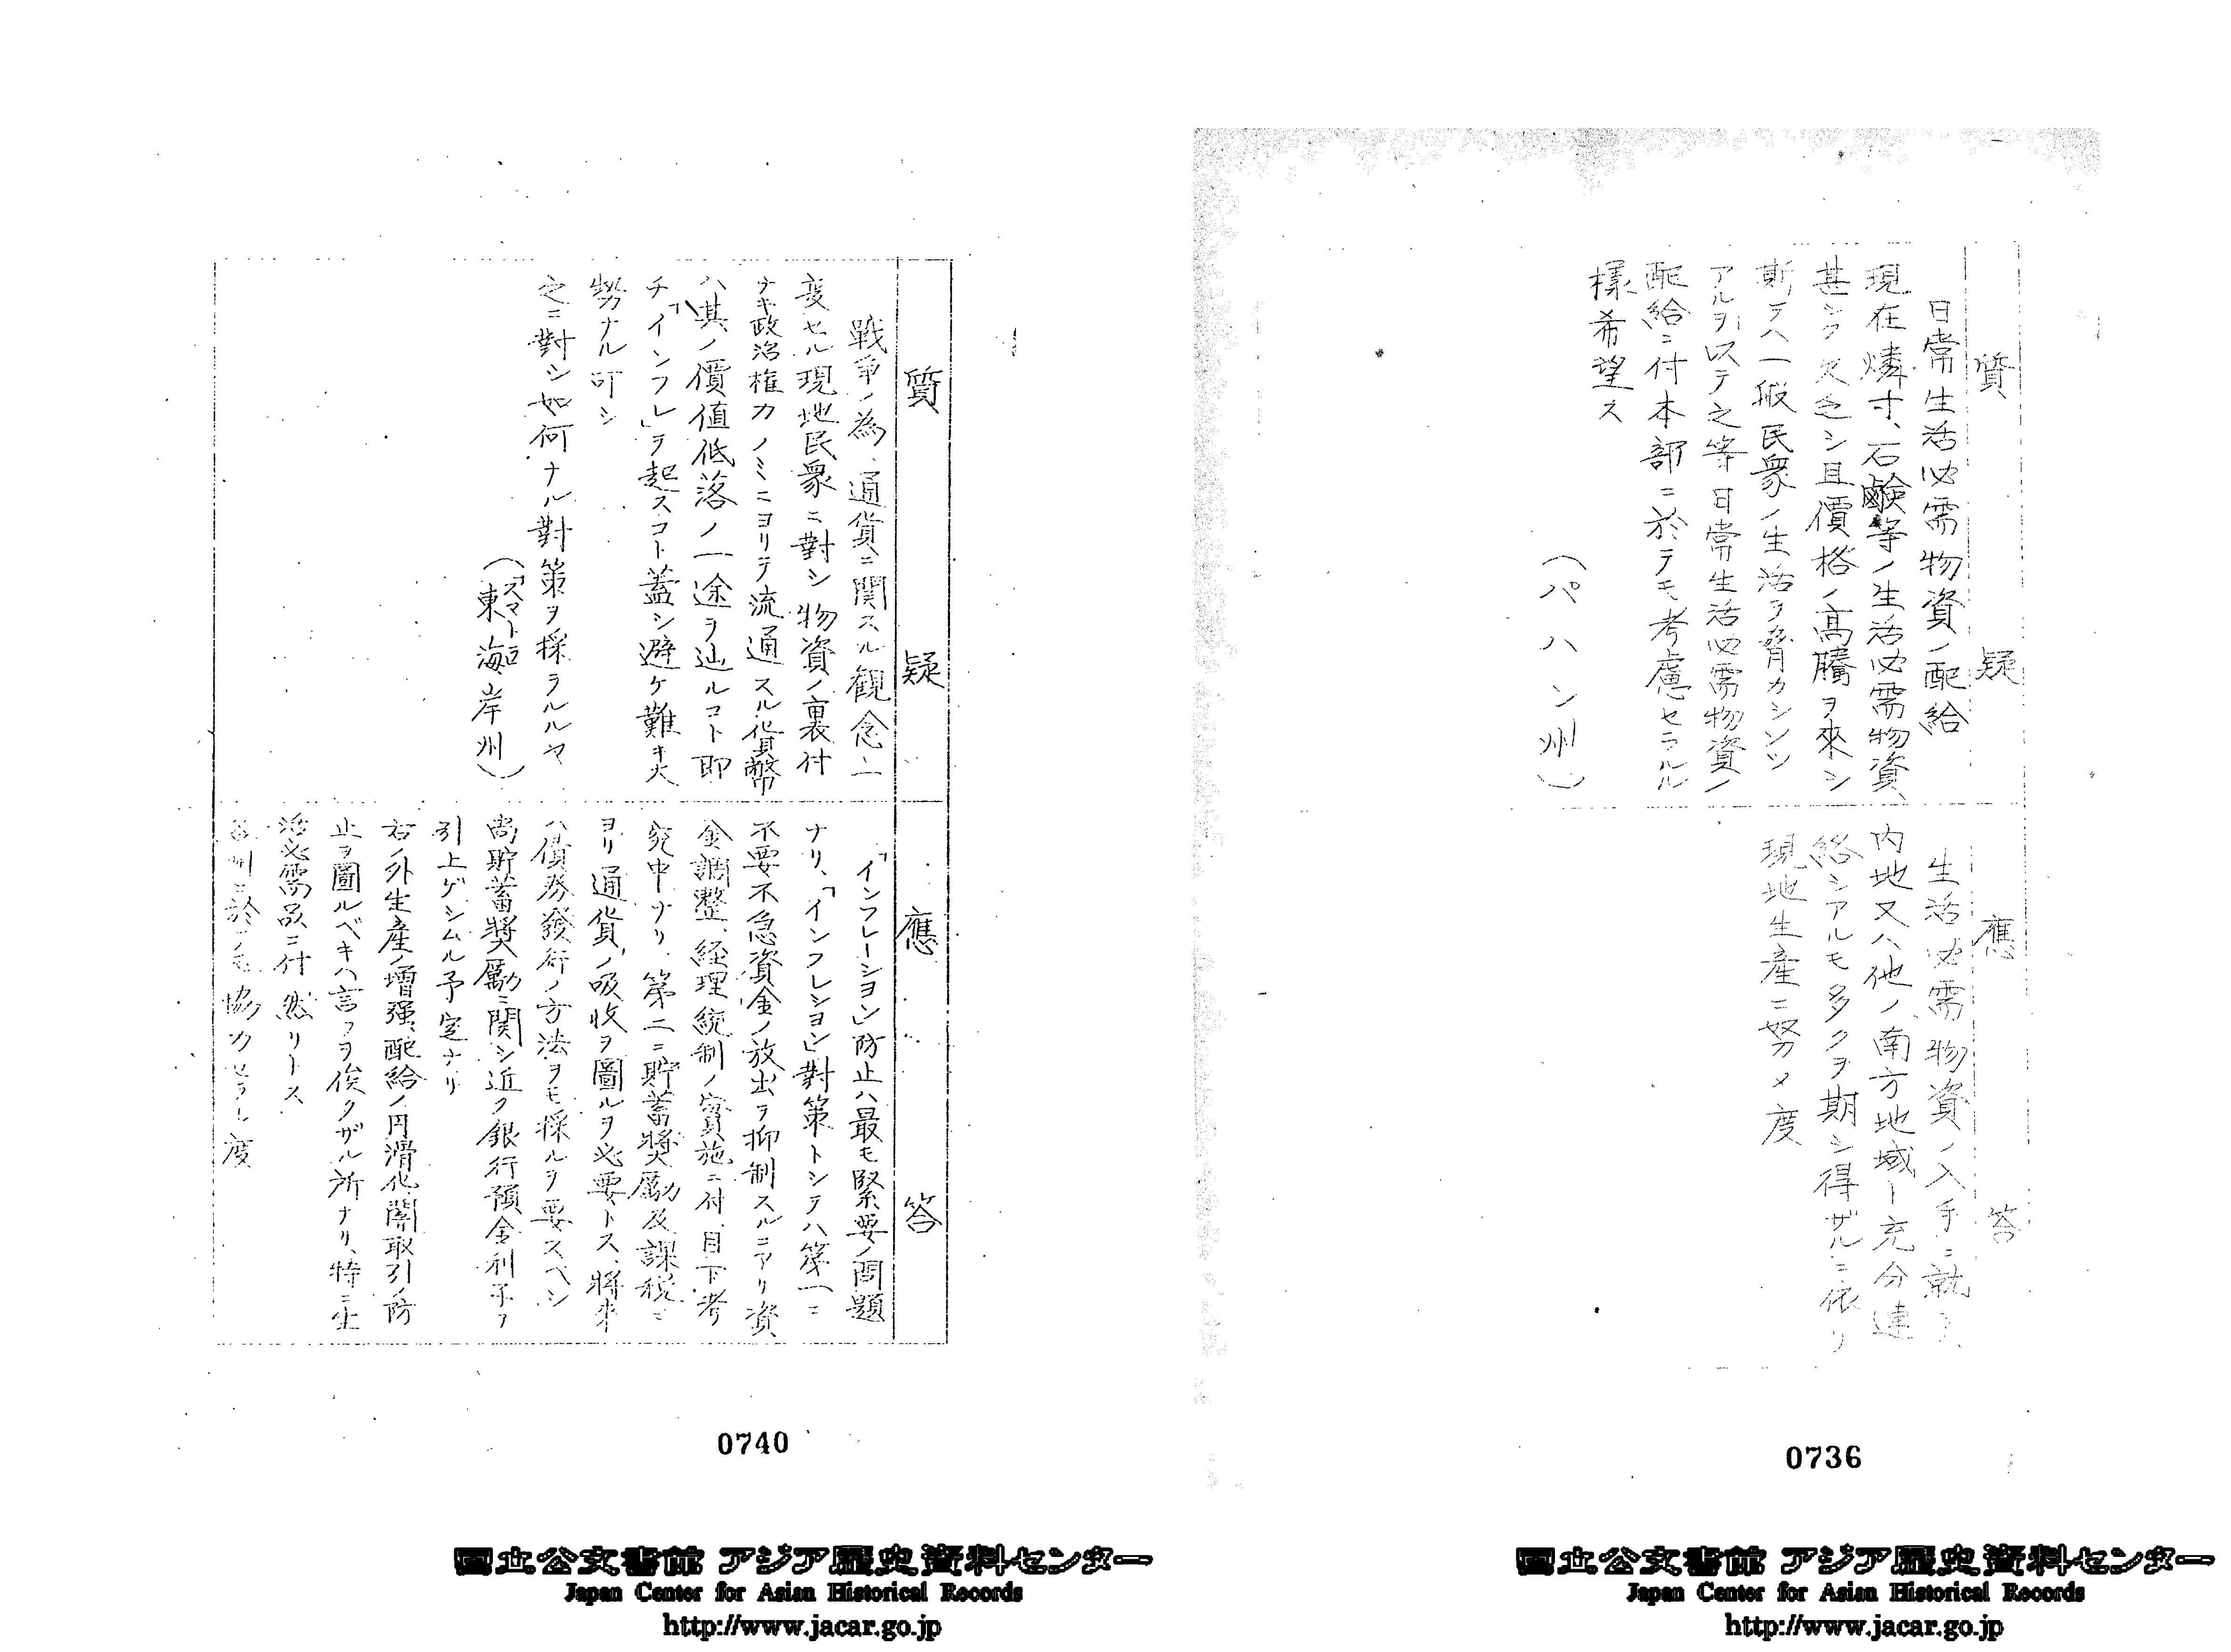 質疑
日常生活必需物資ノ配給
現在燐寸、石鹸等ノ生活必需物資、
甚シク欠乏シ且價格ノ高騰ヲ來シ
斯テハ一般民衆ノ生活ヲ脅カシツツ
アルヲ以テ之等日常生活必需物資ノ
配給ニ付本部ニ於テモ考慮セラルル
様希望ス
(パハン州)
應答
生活必需物資ノ入手ニ就テ
内地又ハ他ノ南方地域ト充分連
絡シアルモ多クヲ期シ得ザルニ依リ
現地生産ニ努メ度
0736
國立公文書館 アジア歴史資料センター
Japan Center for Asian Historical Records
http://www.jacar.go.jp
質疑
戰爭ノ為、通貨ニ関スル観念一
変セル現地民衆ニ對シ物資ノ裏付
ナキ政治権力ノミニヨリテ流通スル貨幣
ハ其ノ價値低落ノ一途ヲ辿ルコト即
チ「インフレ」ヲ起スコト蓋シ避ケ難キ大
勢ナル可シ
之ニ對シ如何ナル對策ヲ採ラルルヤ
(「スマトロ」
東海岸州)
應答
「インフレーション」防止ハ最モ緊要ノ問題
ナリ、「インフレション」對策トシテハ第一ニ
不要不急資金ノ放出ヲ抑制スルニアリ資
金調整、経理統制ノ實施ニ付、目下考
究中ナリ、第二ニ貯蓄奨励及課税ニ
ヨリ通貨ノ吸收ヲ圖ルヲ必要トス、將來
ハ債券發行ノ方法ヲモ採ルヲ要スベシ
尚貯蓄奨励ニ関シ近ク銀行預金利子ヲ
引上ゲシムル予定ナリ
右ノ外生産ノ増强、配給ノ円滑化闇取引ノ防
止ヲ圖ルベキハ言フヲ俟タザル所ナリ、特ニ生
活必需品ニ付然リトス
各州ニ於テモ協力セラレ度
0740
國立公文書館 アジア歴史資料センター
Japan Center for Asian Historical Records
http://www.jacar.go.jp